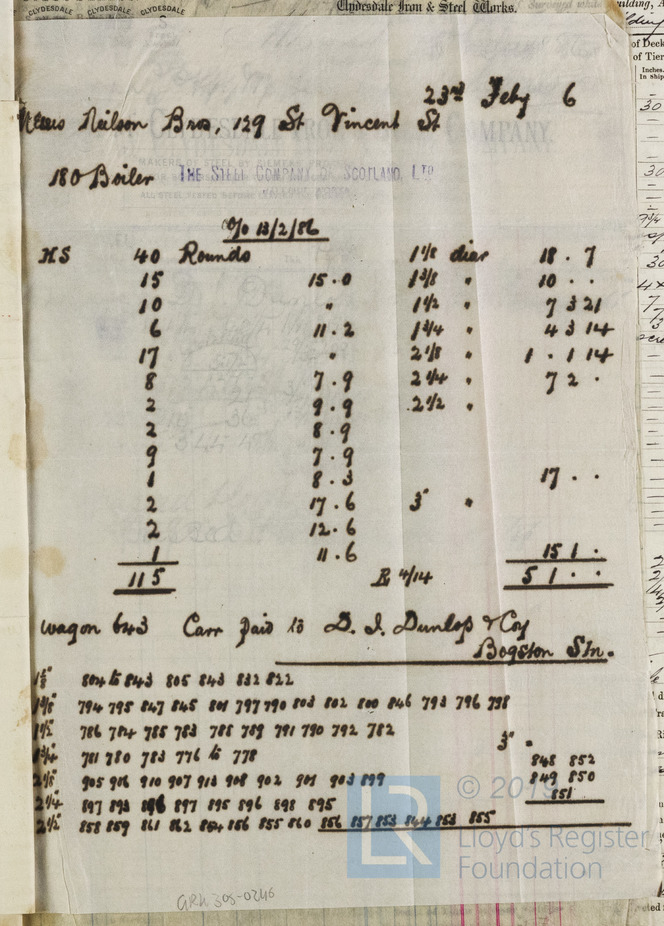 CLYDESDALE CLYDESDALE CLYDESDALE
Clydesdale Iron & Steel Works.
23rd Feby 6
Neilson Bros, 129 St Vincent St
180 Boiler THE STEEL COMPANY OF SCOTLAND, LTD
o/o 13/2/86
HS 40 Rounds 1 1/8 diar 18 . 7
15 15.0 1 3/8 " 10 . .
10 " 1 1/2 " 7 3 21
6 11.2 1 3/4 " 4 3 14
17 " 2 1/8 " 1 . 1 14
8 7.9 2 1/4 " 7 2 .
2 9.9 2 1/2 "
2 8.9
9 7.9
1 8.3 17 . .
2 17.6 3" "
2 12.6
1 11.6 15 1 .
115 R 4/14 5 1 . .
Wagon 643 Carr paid to D. J. Dunlop & Coy
Bogston Stn.
804 to 843 805 843 832 822
794 795 847 845 801 797 790 803 802 800 846 793 796 798
1 1/2" 786 784 785 783 788 789 791 790 792 782
1 3/4" 781 780 783 776 to 778
3" "
848 852
849 850
851
2 1/8" 905 906 910 907 913 908 902 901 903 899
2 1/4" 897 893 896 897 895 896 898 895
2 1/2" 858 859 861 862 864 866 855 860 856 857 853 844 853 855
© 2019
LR
Lloyd's Register
Foundation